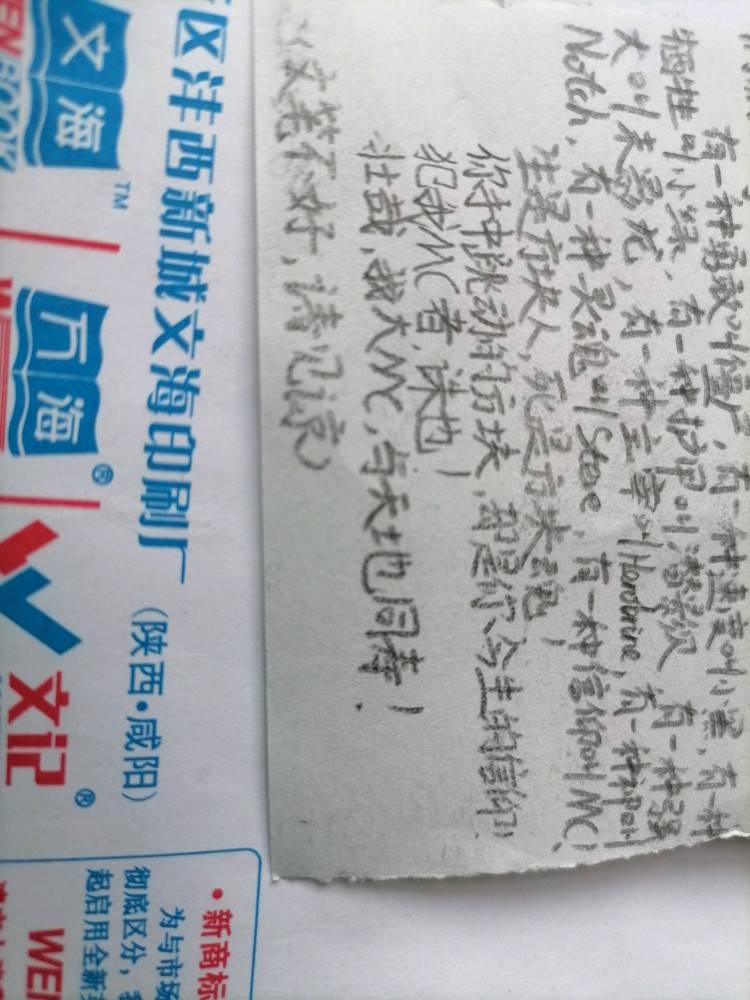 有一种勇敢叫僵尸,有一种速度叫小黑,有一种
牺牲叫小绿,有一种护甲叫潜 有一种强
大叫末影龙,有一种主宰叫Herobrine,有一种神叫
Notch,有一种灵魂叫Steve,有一种信仰叫MC!
生是方块人,死是方块魂,
你手中跳动的方块,却是你今生的信仰!
犯我MC者,诛也!
壮哉,我大MC,与天地同寿!
(文笔不好,请见谅)
区沣西新城文海印刷厂(陕西·咸阳)
文海™
EN BOOK
万海®
文记®
•新商标
为与市场
彻底区分,
起启用全新
WE